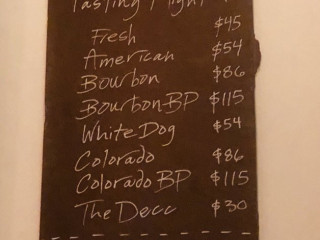 Tasting Flight
Fresh $45
American $54
Bourbon $86
Bourbon BP $115
White Dog $54
Colorado $86
Colorado BP $115
The Decc $30